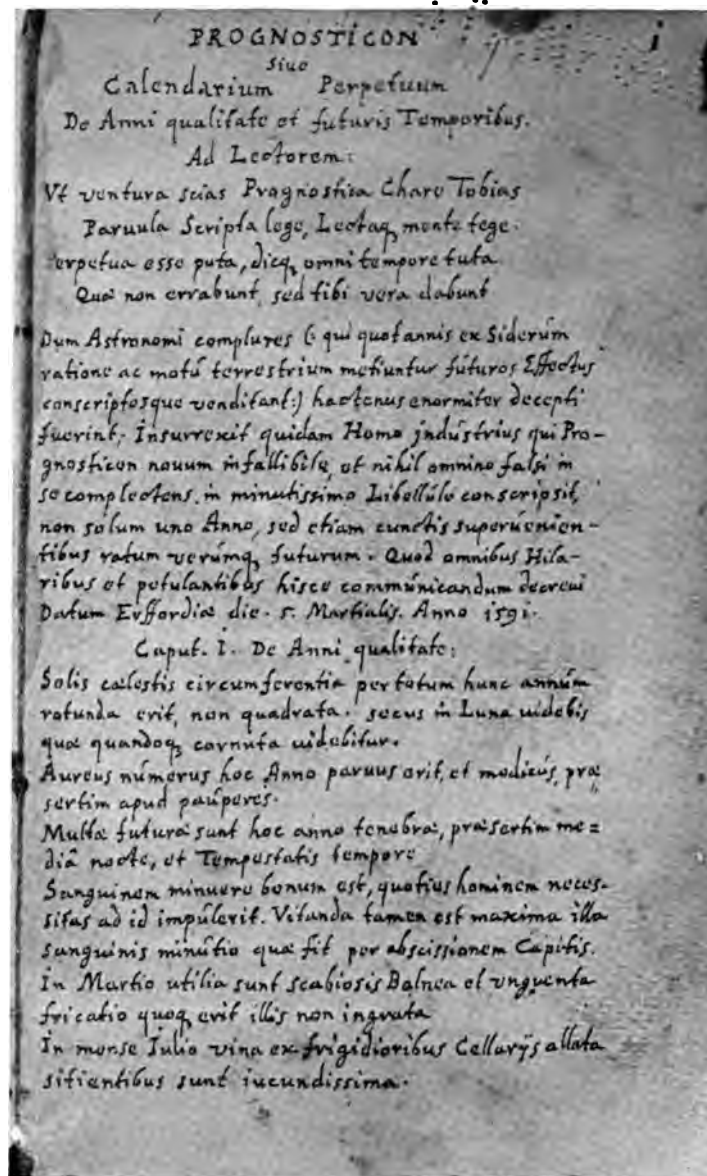 PROGNOSTICON i
siue
Calendarium Perpetuum
De Anni qualitate et futuris Temporibus.
Ad Lectorem:
Vt ventura scias Prognostica Chare Tobias
Paruula Scripta lege, Lectaq mente tege.
Perpetua esse puta, dicq omni tempore tuta
Quæ non errabunt, sed tibi vera dabunt
Dum Astronomi complures (: qui quotannis ex Siderum
ratione ac motu terrestrium metiuntur futuros Effectus
conscriptosque venditant:) hactenus enormiter decepti
fuerint; Insurrexit quidam Homo industrius qui Pro-
gnosticon nouum infallibile, et nihil omnino falsi in
se complectens, in minutissimo Libellulo conscripsit,
non solum uno Anno, sed etiam cunctis superuenien-
tibus ratum verumq futurum. Quod omnibus Hila-
ribus et petulantibus hisce communicandum decreui
Datum Erffordiæ die. 5. Martialis. Anno 1591.
Caput. I. De Anni qualitate:
Solis cælestis circumferentia per totum hunc annum
rotunda erit, non quadrata. secus in Luna uidebis
quæ quandoq cornuta uidebitur.
Aureus numerus hoc Anno paruus erit, et modicus, præ
sertim apud pauperes.
Multæ futuræ sunt hoc anno tenebræ, præsertim me=
diâ nocte, et Tempestatis tempore
Sanguinem minuere bonum est, quoties hominem neces-
sitas ad id impulerit. Vitanda tamen est maxima illa
sanguinis minutio quæ fit per abscissionem Capitis.
In Martio utilia sunt scabiosis Balnea et vnguenta
fricatio quoq erit illis non ingrata
In mense Iulio vina ex frigidioribus Cellarijs allata
sitientibus sunt iucundissima.